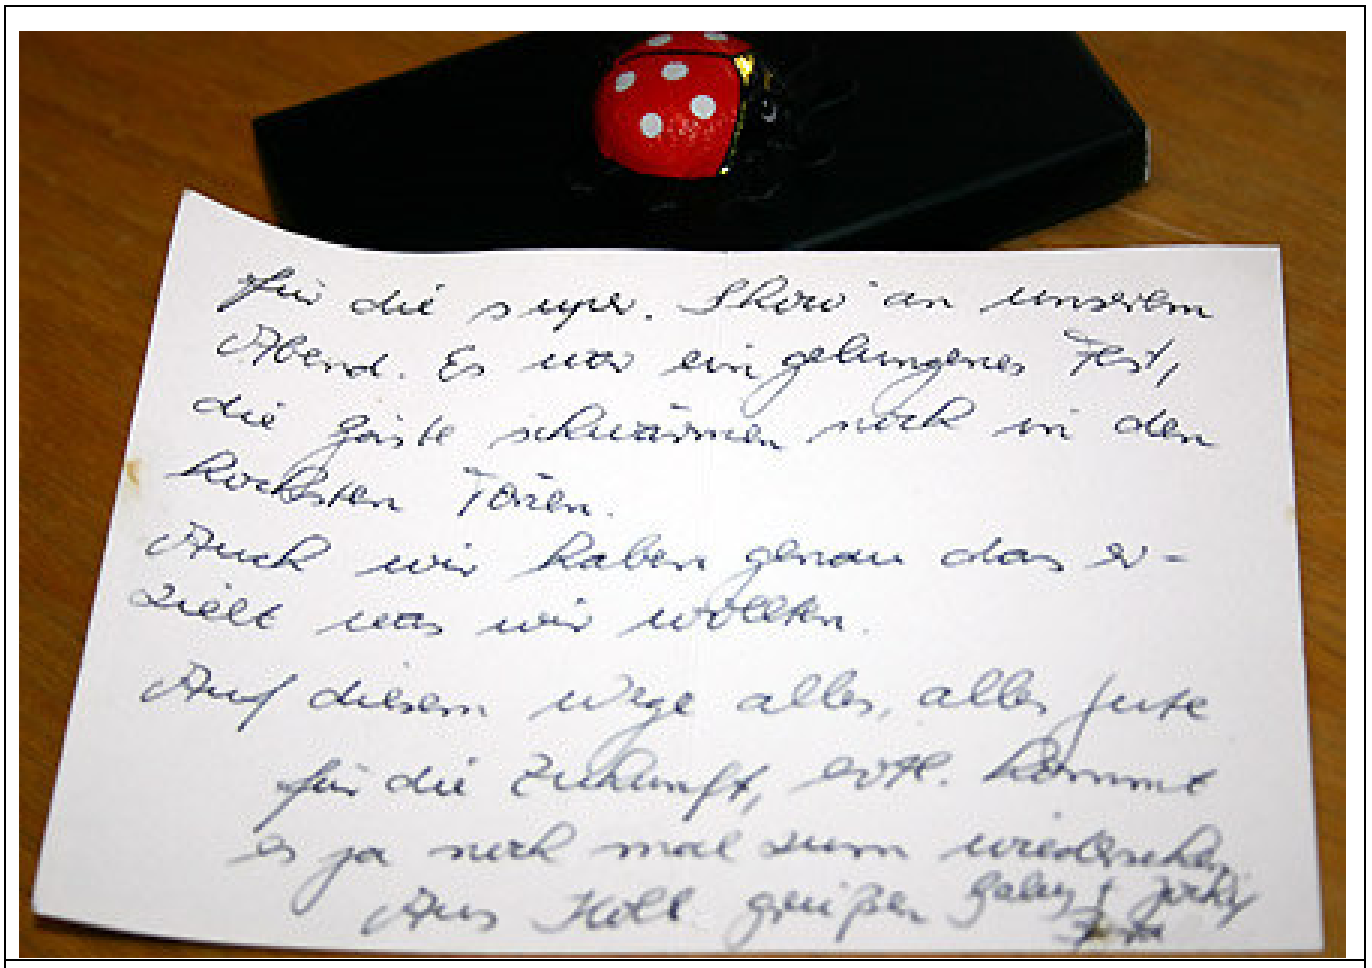 für die super. Show an unserem
Abend. Es war ein gelungenes Fest,
die Gäste schwärmen noch in den
höchsten Tönen.
Auch wir haben genau das er-
zielt was wir wollten.
Auf diesem Wege alles, alles Gute
für die Zukunft, evtl. kommt
es ja noch mal zum wiedersehen
Aus grüßen Gaby